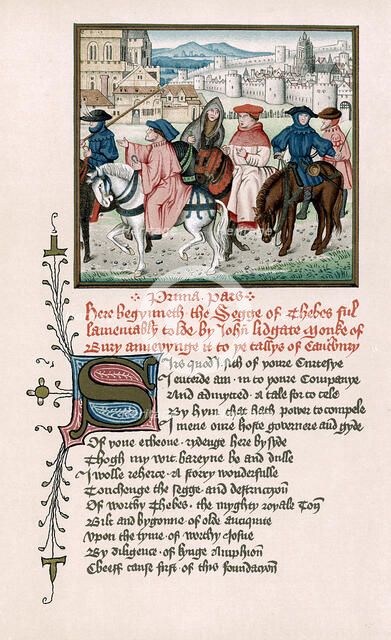 Prima Pars
Here begynneth the Segge of Thebes ful
lamentably tolde by John Lidgate Monke of
Bury anneyynge it to ye tallys of Canterbury
Sirs quod I sith of youre Curtesye
I entrede am in to youre Companye
And admytted a tale for to telle
By hym that hath power to compele
I mene oure hoste governere and gyde
Of yone echeone rydenge here by syde
Thogh my wit bareyne be and dulle
I wolle reherce a storry wonderfulle
Touchenge the segge and destruccyon
Of worthy Thebes the myghty royale Ton
Bilt and bygonne of olde antiquite
Upon the tyme of worthy Josue
By diligence of kynge Amphion
Cheeff cause first of this foundacyon